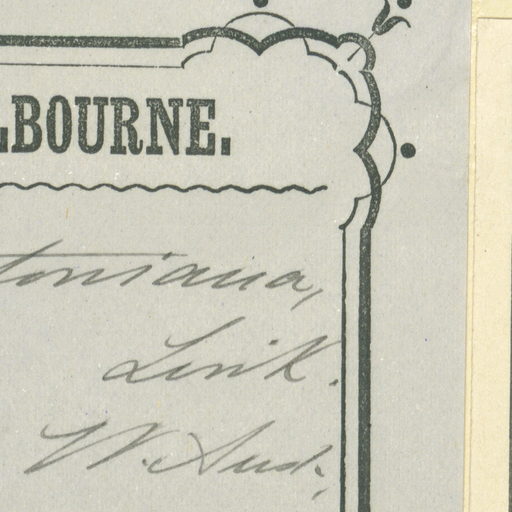 LBOURNE.
toniana,
Link.
W. Aus.